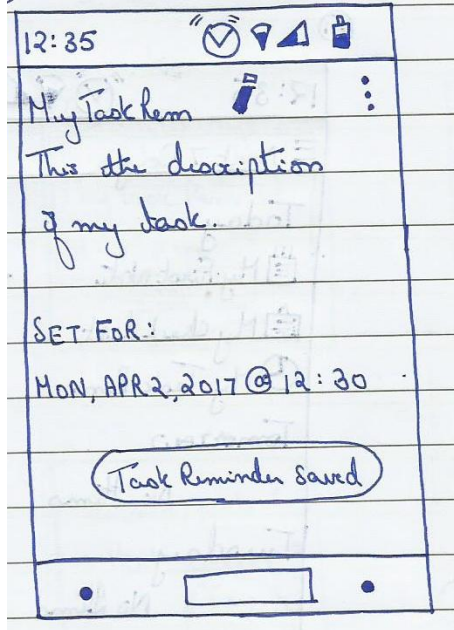 12:35
My Task Rem
This the description
of my task.
SET FOR:
MON, APR 2, 2017 @ 12:30
Task Reminder Saved